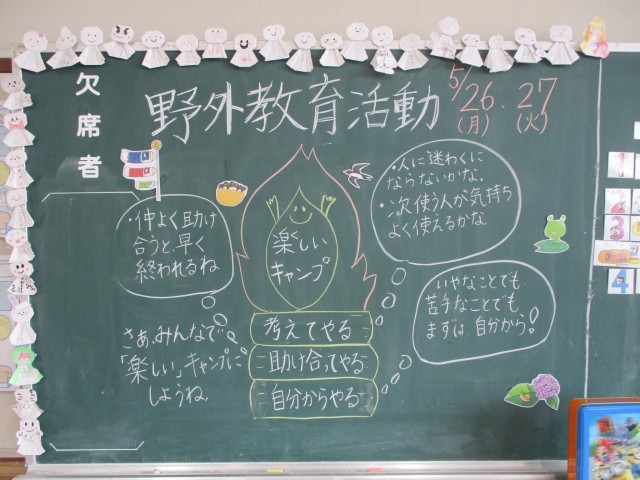 欠席者
野外教育活動
5/26(月)・27(火)
・人に迷わくに
ならないかな。
・次使う人が気持ち
よく使えるかな
・仲よく助け
合うと、早く
終われるね
楽しい
キャンプ
いやなことでも
苦手なことでも
まずは自分から!
考えてやる
助け合ってやる
自分からやる
さぁ、みんなで
「楽しい」キャンプに
しようね。
1
2
3
4